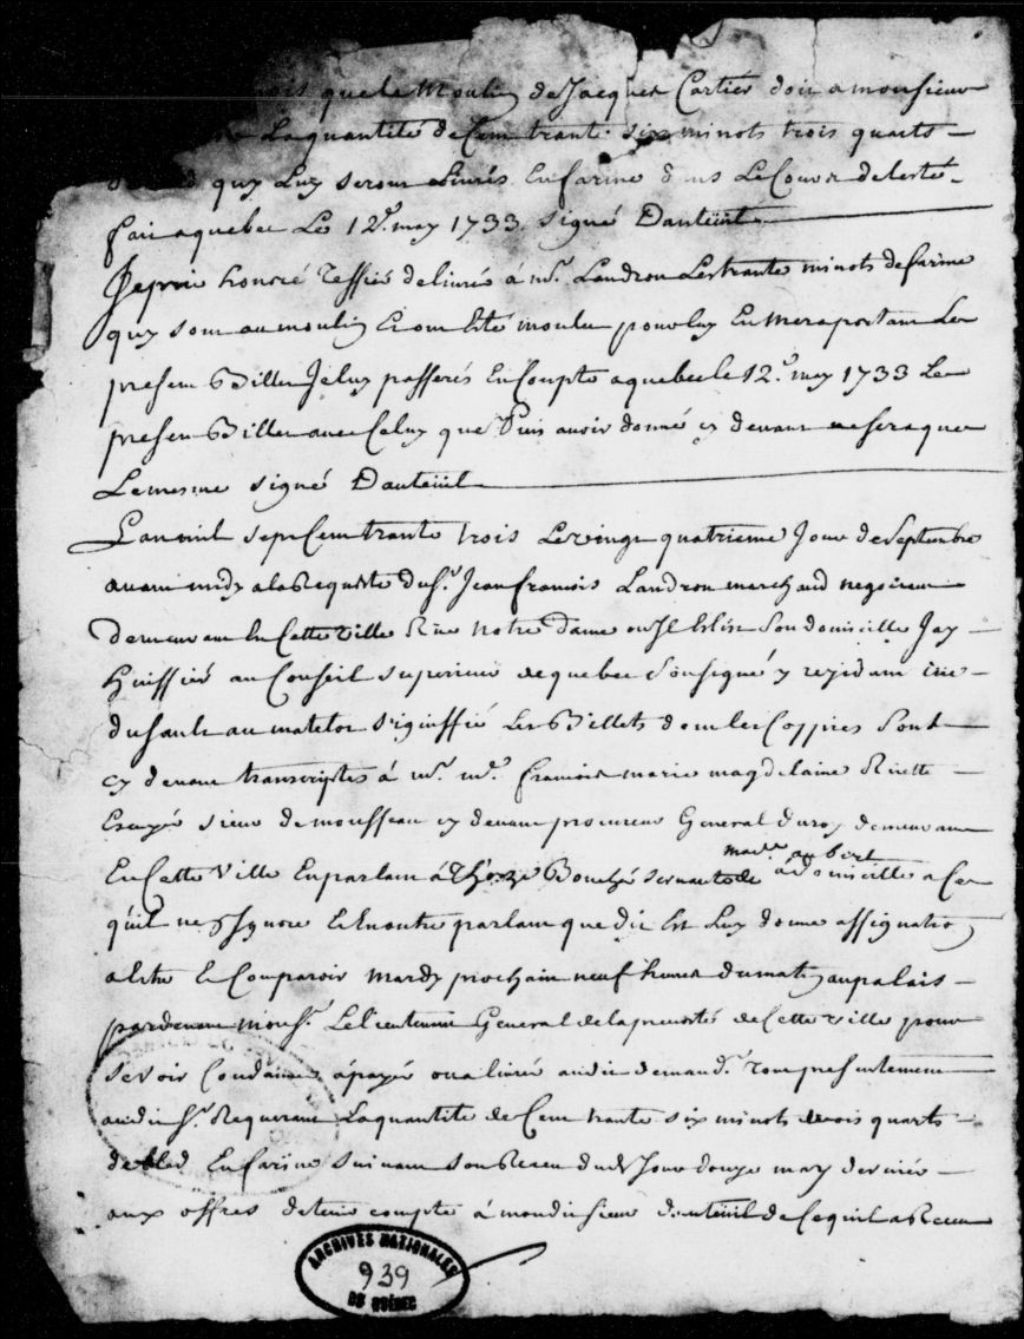 que le Moulin de Jacques Cartier doit a monsieur
La quantité de Cent trante six minots trois quarts
quy Luy seront Livrés En farine dans Le Cours de lesté
fait a quebec Le 12e. may 1733. signé Dauteüil
Je prie honoré Tessié de livrer á mr. Landron Les trante minots de farine
quy sont au moulin Et ont Esté moulu pour luy En me raportant Le
present Billet Je luy passerés En Compte a quebec le 12e. may 1733 Le
present Billet avec Celuy que Puis avoir donné cy devant ne sera que
Le mesme signé Dauteüil
L'an mil sept Cent trante trois Le vingt quatrieme Jour de Septembre
avant midy a la Requeste du Sr. Jean francois Landron marchand negotiant
demeurant En Cette ville Rüe notre dame ou Jl Eslist Son domicille Jay
Huissier au Conseil superieur de quebec Soussigné y rezidant rüe
du Sault au matelot signiffié Les Billets dont les Coppies Sont
cy devant transcriptes á mr. me. francois marie magdelaine Ruette
Escuyer sieur de monsseau cy devant procureur General du roy demeurant
En Cette Ville En parlant á Boucher servante de made. aubert a domicille a Ce
quil nen Jgnore Et En outre parlant que dit Est Luy donne assignation
a Estre Et Comparoir mardy prochain neuf heures du matin au palais
pardevant monsr. Le lieutenant General de la prevosté de Cette ville pour
se voir Condamné á payer ou a livrer audit demandr. tout presentement
audit Sr. Requerant La quantité de Cent trante six minots trois quarts
de bled En farine suivant son Receu dudt Jour douze may dernier
aux offres de tenir compte á mondit sieur dauteüil de Ce quil a Receu
ARCHIVES NATIONALES
939
DU QUÉBEC